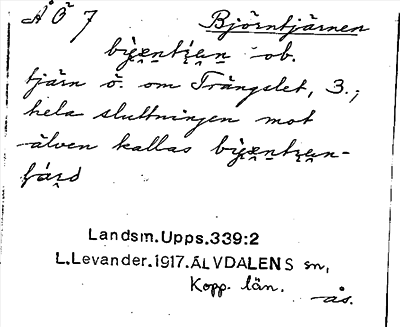 Å Ö 7 Björntjärnen
ob.
tjärn ö. om Trängslet, 3.;
hela sluttningen mot
älven kallas
Landsm.Upps.339:2
L.Levander.1917.ÄLVDALENS sn,
Kopp. län.
ås.